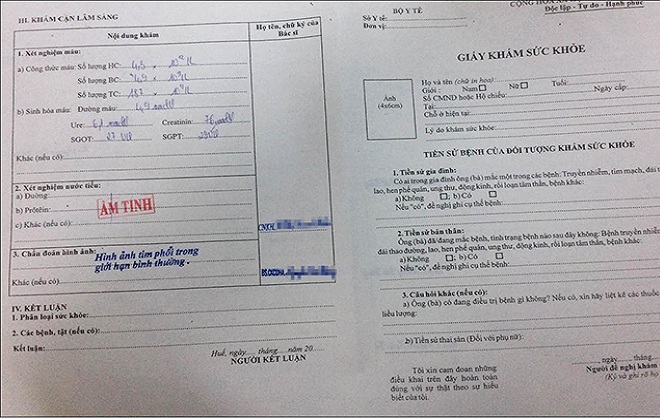 III. KHÁM CẬN LÂM SÀNG
Nội dung khám
Họ tên, chữ ký của
Bác sĩ
1. Xét nghiệm máu:
a) Công thức máu: Số lượng HC: 4,3 x 10¹²/L
Số lượng BC: 4,9 x 10⁹/L
Số lượng TC: 187 x 10⁹/L
b) Sinh hóa máu: Đường máu: 4,9 mmol/l
Ure: Creatinin: 76
SGOT: 27 U/l SGPT: 29 U/l
Khác (nếu có):
2. Xét nghiệm nước tiểu:
a) Đường:
b) Prôtêin:
ÂM TÍNH
c) Khác (nếu có):
3. Chẩn đoán hình ảnh:
Hình ảnh tim phổi trong
giới hạn bình thường.
Khác (nếu có):
IV. KẾT LUẬN
1. Phân loại sức khỏe:
2. Các bệnh, tật (nếu có):
Kết luận:
Huế, ngày..... tháng..... năm 20....
NGƯỜI KẾT LUẬN
BỘ Y TẾ
Sở Y tế:
Số:
Độc lập - Tự do - Hạnh phúc
GIẤY KHÁM SỨC KHỎE
Ảnh
(4x6cm)
Họ và tên (chữ in hoa):
Giới: Nam □ Nữ □ Tuổi:
Số CMND hoặc Hộ chiếu: Ngày cấp:
Tại:
Chỗ ở hiện tại:
Lý do khám sức khỏe:
TIỀN SỬ BỆNH CỦA ĐỐI TƯỢNG KHÁM SỨC KHỎE
1. Tiền sử gia đình:
Có ai trong gia đình ông (bà) mắc một trong các bệnh: Truyền nhiễm, tim mạch, đái tháo
lao, hen phế quản, ung thư, động kinh, rối loạn tâm thần, bệnh khác:
a) Không □; b) Có □
Nếu "có", đề nghị ghi cụ thể bệnh:
2. Tiền sử bản thân:
Ông (bà) đã/đang mắc bệnh, tình trạng bệnh nào sau đây không: Bệnh truyền nhiễm
đái tháo đường, lao, hen phế quản, ung thư, động kinh, rối loạn tâm thần, bệnh khác:
a) Không □; b) Có □
Nếu "có", đề nghị ghi cụ thể bệnh:
3. Câu hỏi khác (nếu có):
a) Ông (bà) có đang điều trị bệnh gì không? Nếu có, xin hãy liệt kê các thuốc
liều lượng:
b) Tiền sử thai sản (Đối với phụ nữ):
Tôi xin cam đoan những
điều khai trên đây hoàn toàn
đúng với sự thật theo sự hiểu
biết của tôi.
........, ngày....... tháng
Người đề nghị khám
(Ký và ghi rõ họ